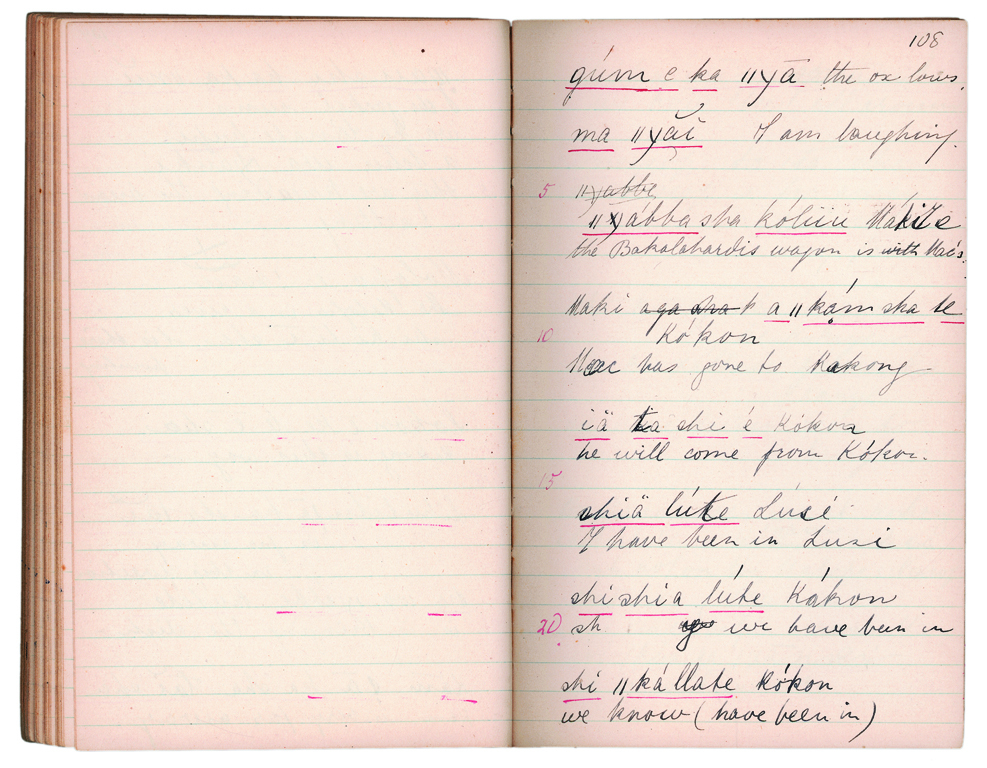 108
gúm e ka ǁyā the ox lows.
ma ǁyăĭ I am laughing.
5 ǁyabbe
ǁyábba sha kóliiu Mákite
the Bakalahardis wagon is with Mac's.
Maki a ǁkám ska te
10 Kókon
Mac has gone to Kakong
iä ta shi é Kókon
he will come from Kókon.
15
shiä lúte Lúsé
I have been in Lusi
shi shi a lúte Kákon
20 sh we have been in
shi ǁkállate Kókon
we know (have been in)